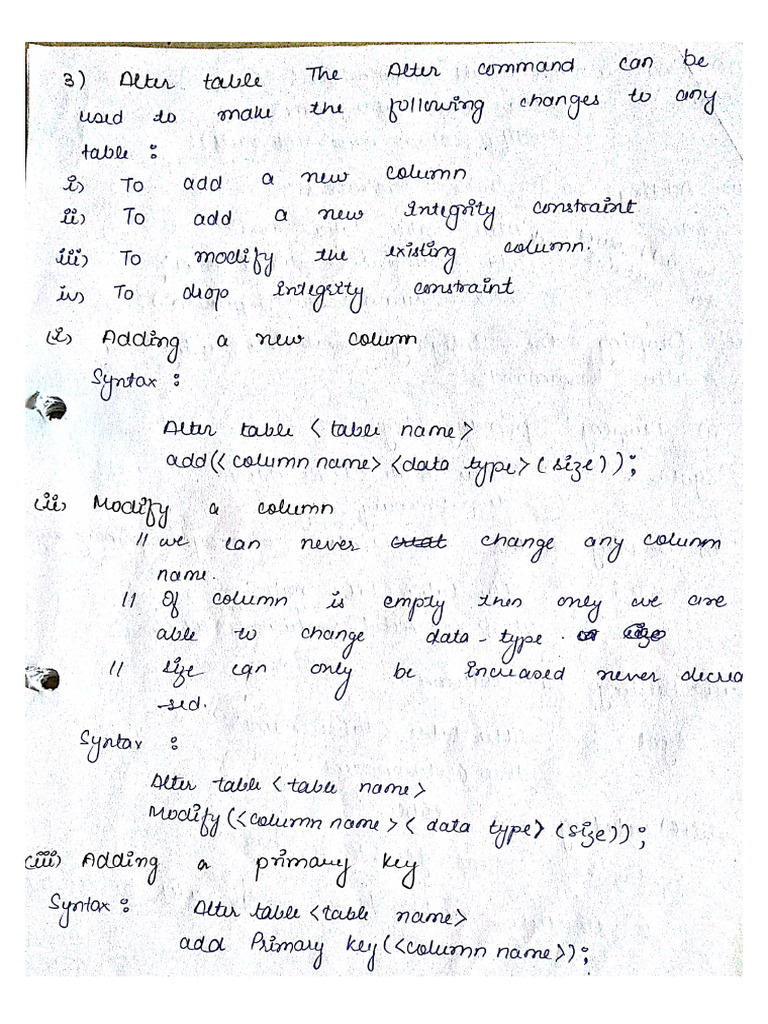 3) Alter table The Alter command can be
used to make the following changes to any
table :
i) To add a new column
ii) To add a new Integrity constraint
iii) To modify the existing column.
iv) To drop Integrity constraint
(i) Adding a new column
Syntax :
Alter table < table name>
add(<column name> <data type> (size));
(ii) Modify a column
// we can never change any column
name.
// If column is empty then only we are
able to change data-type.
// size can only be increased never decrea
-sed.
Syntax :
Alter table < table name>
Modify(<column name> < data type> (size));
(iii) Adding a primary key
Syntax : Alter table <table name>
add Primary key(<column name>);